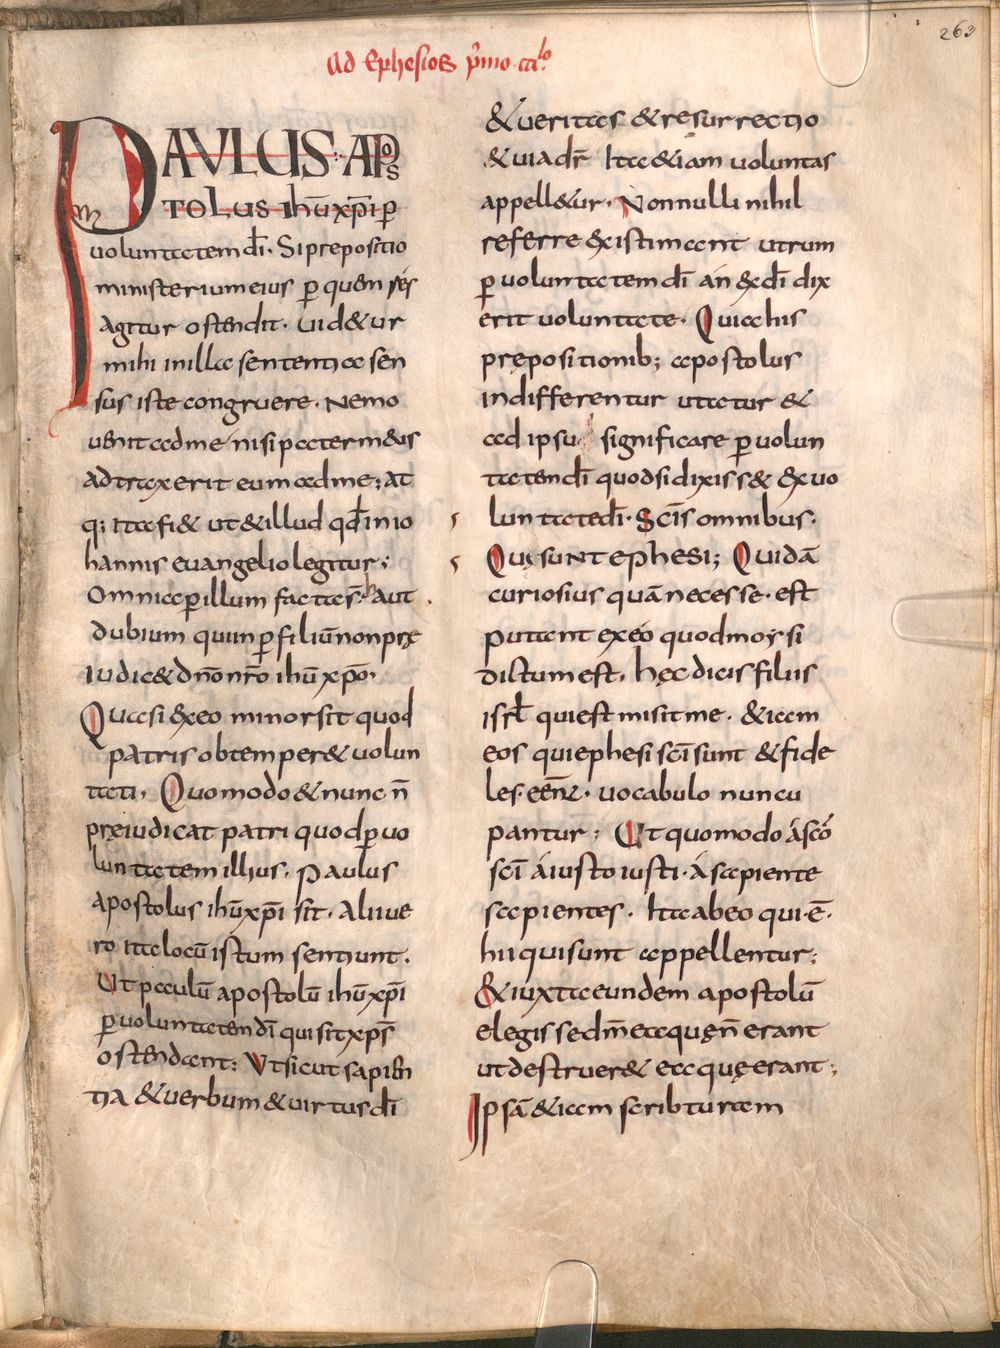 263
Ad Ephesios p̄mo ca℔lo
PAVLUS APOS
TOLUS ihū xp̄i ꝑ
uoluntatem dī. Si prepositio
ministerium eius ꝑ quem res
agitur ostendit. Uidetur
mihi in illa sententia sen
sus iste congruere. Nemo
uenit ad me nisi pater meus
adtraxerit eum ad me; at
q; ita fi& ut &illud qđ in io
hannis euangelio legitur;
Omnia ꝑ illum facta s̄. haut
dubium quin ꝑ filiū non prę
iudic& dn̄o nr̄o ihū xp̄o.
Quasi ex eo minor sit quod
patris obtemper& uolun
tati. Quomodo & nunc n̄
pręiudicat patri quod ꝑ uo
luntatem illius. Paulus
apostolus ihū xp̄i sit. Alii ue
ro ita locū istum sentiunt.
Ut paulū apostolū ihū xp̄i
ꝑ uoluntatem dī qui sit xp̄s
ostendant; Ut sicut sapien
tia & uerbum & uirtus dī
& ueritas & resurrectio
& uia dr̄ Ita & iam uoluntas
appell&ur. Nonnulli nihil
referre existimant utrum
ꝑ uoluntatem dī an ex dī dix
erit uoluntate. Quia his
prępositionib; apostolus
indifferentur utatur &
ad ipsu significare ꝑ uolun
tatem dī quod si dixiss& ex uo
luntate dī. Sc̄is omnibus.
Quę sunt ephesi; Quidā
curiosius quā necesse est
putant ex eo quod moysi
dictum est. hęc dicis filiis
isrł qui est misit me. &iam
eos qui ephesi sc̄i sunt & fide
les. eēn&#42843;. uocabulo nuncu
pantur; Ut quomodo á sc̄o
sc̄i á iusto iusti. á sapiente
sapientes. Ita abeo qui .ē.
hii qui sunt appellentur;
& iuxta eundem apostolū
elegisse dm̄ ea quę n̄ erant
ut destruer& ea quę erant;
Ipsā &iam scribturam